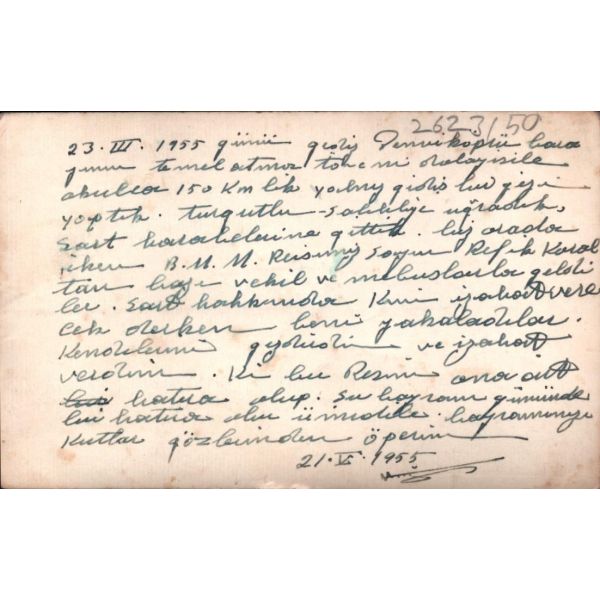 2623/50
23. III. 1955 günü gediz Demirköprü bara
jının temel atma töreni dolayısile
okulca 150 Km lik yalnız gidiş bir gezi
yaptık. turgutlu - Salihliye uğradık.
Sart harabelerine gittik. biz orada
iken B.M.M. Reisimiz Sayın Refik Koral
tan bazı vekil ve mebuslarla geldi
ler. Sart hakkında Kim izahat vere
cek derken beni yakaladılar.
Kendilerini gezdirdim ve izahat
verdim. Ki bu Resim ona ait
bir hatıra olup. Şu bayram gününde
bir hatıra olur ümidile. bayramınızı
Kutlar gözlerinden öperim
21. V. 1955